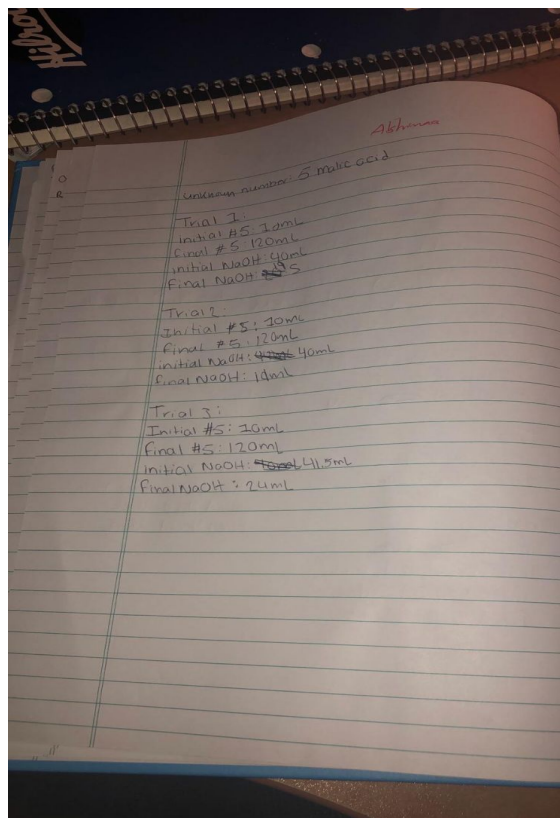 Hilroy
unknown number: 5 malic acid
Trial 1:
Initial #5: 10mL
Final #5: 120mL
Initial NaOH: 40mL
Final NaOH:
Trial 2:
Initial #5: 10mL
Final #5: 120mL
initial NaOH: 40mL
final NaOH: 19mL
Trial 3:
Initial #5: 10mL
Final #5: 120mL
initial NaOH: 41.5mL
Final NaOH: 24mL